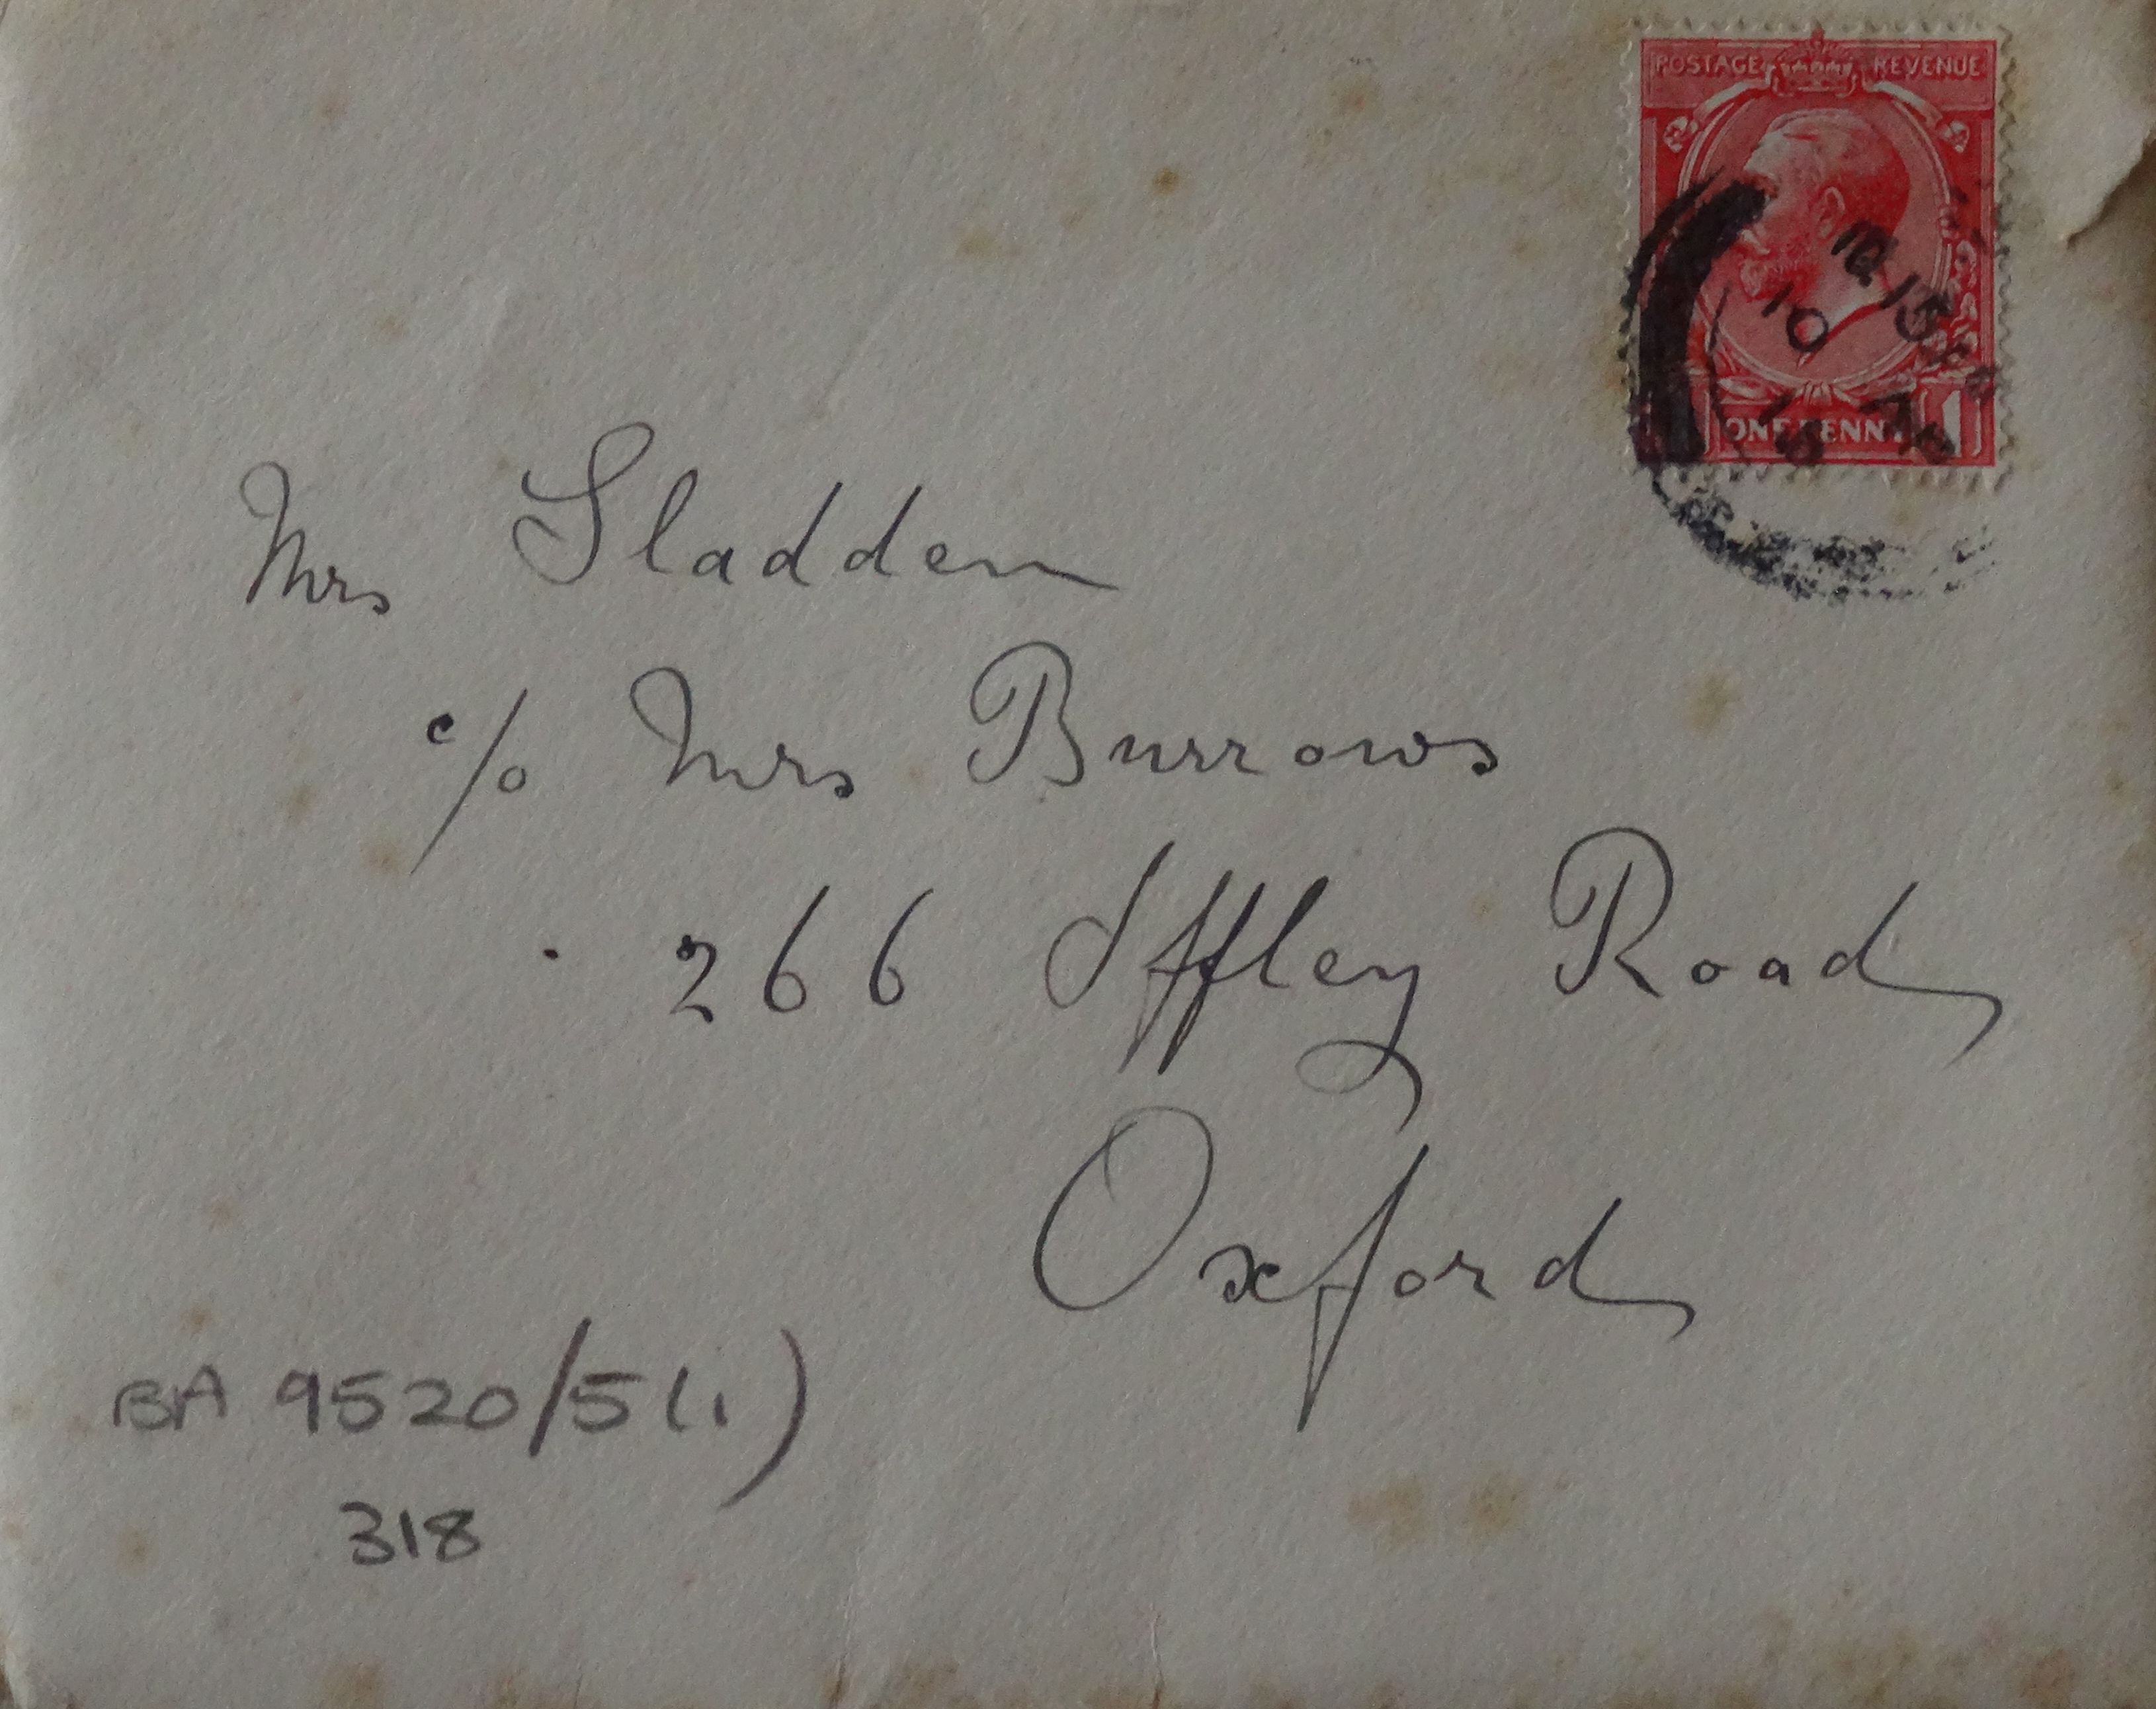 POSTAGE REVENUE
10.15
10
ONE PENNY 1
Mrs Sladden
c/o Mrs Burrows
266 Iffley Road
Oxford
BA 9520/5(1)
318